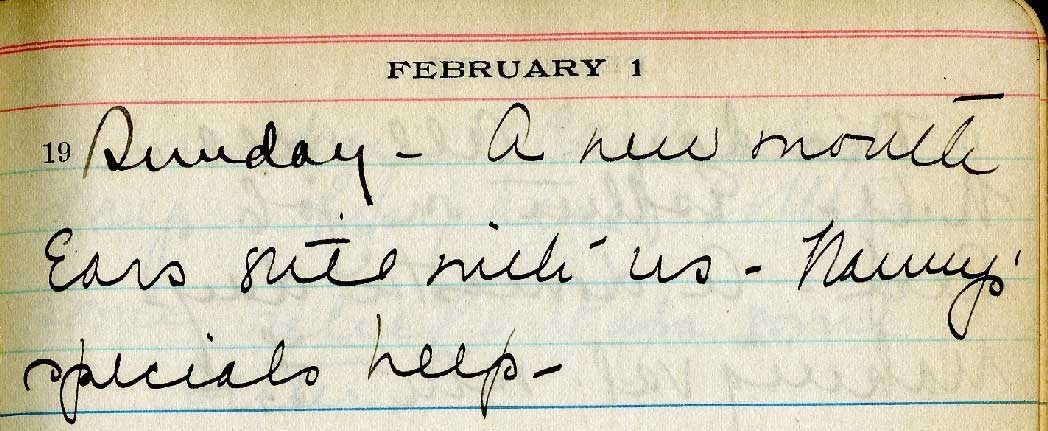 FEBRUARY 1
19 Sunday - A new month
Ears still with us - Nancy's
specials help -